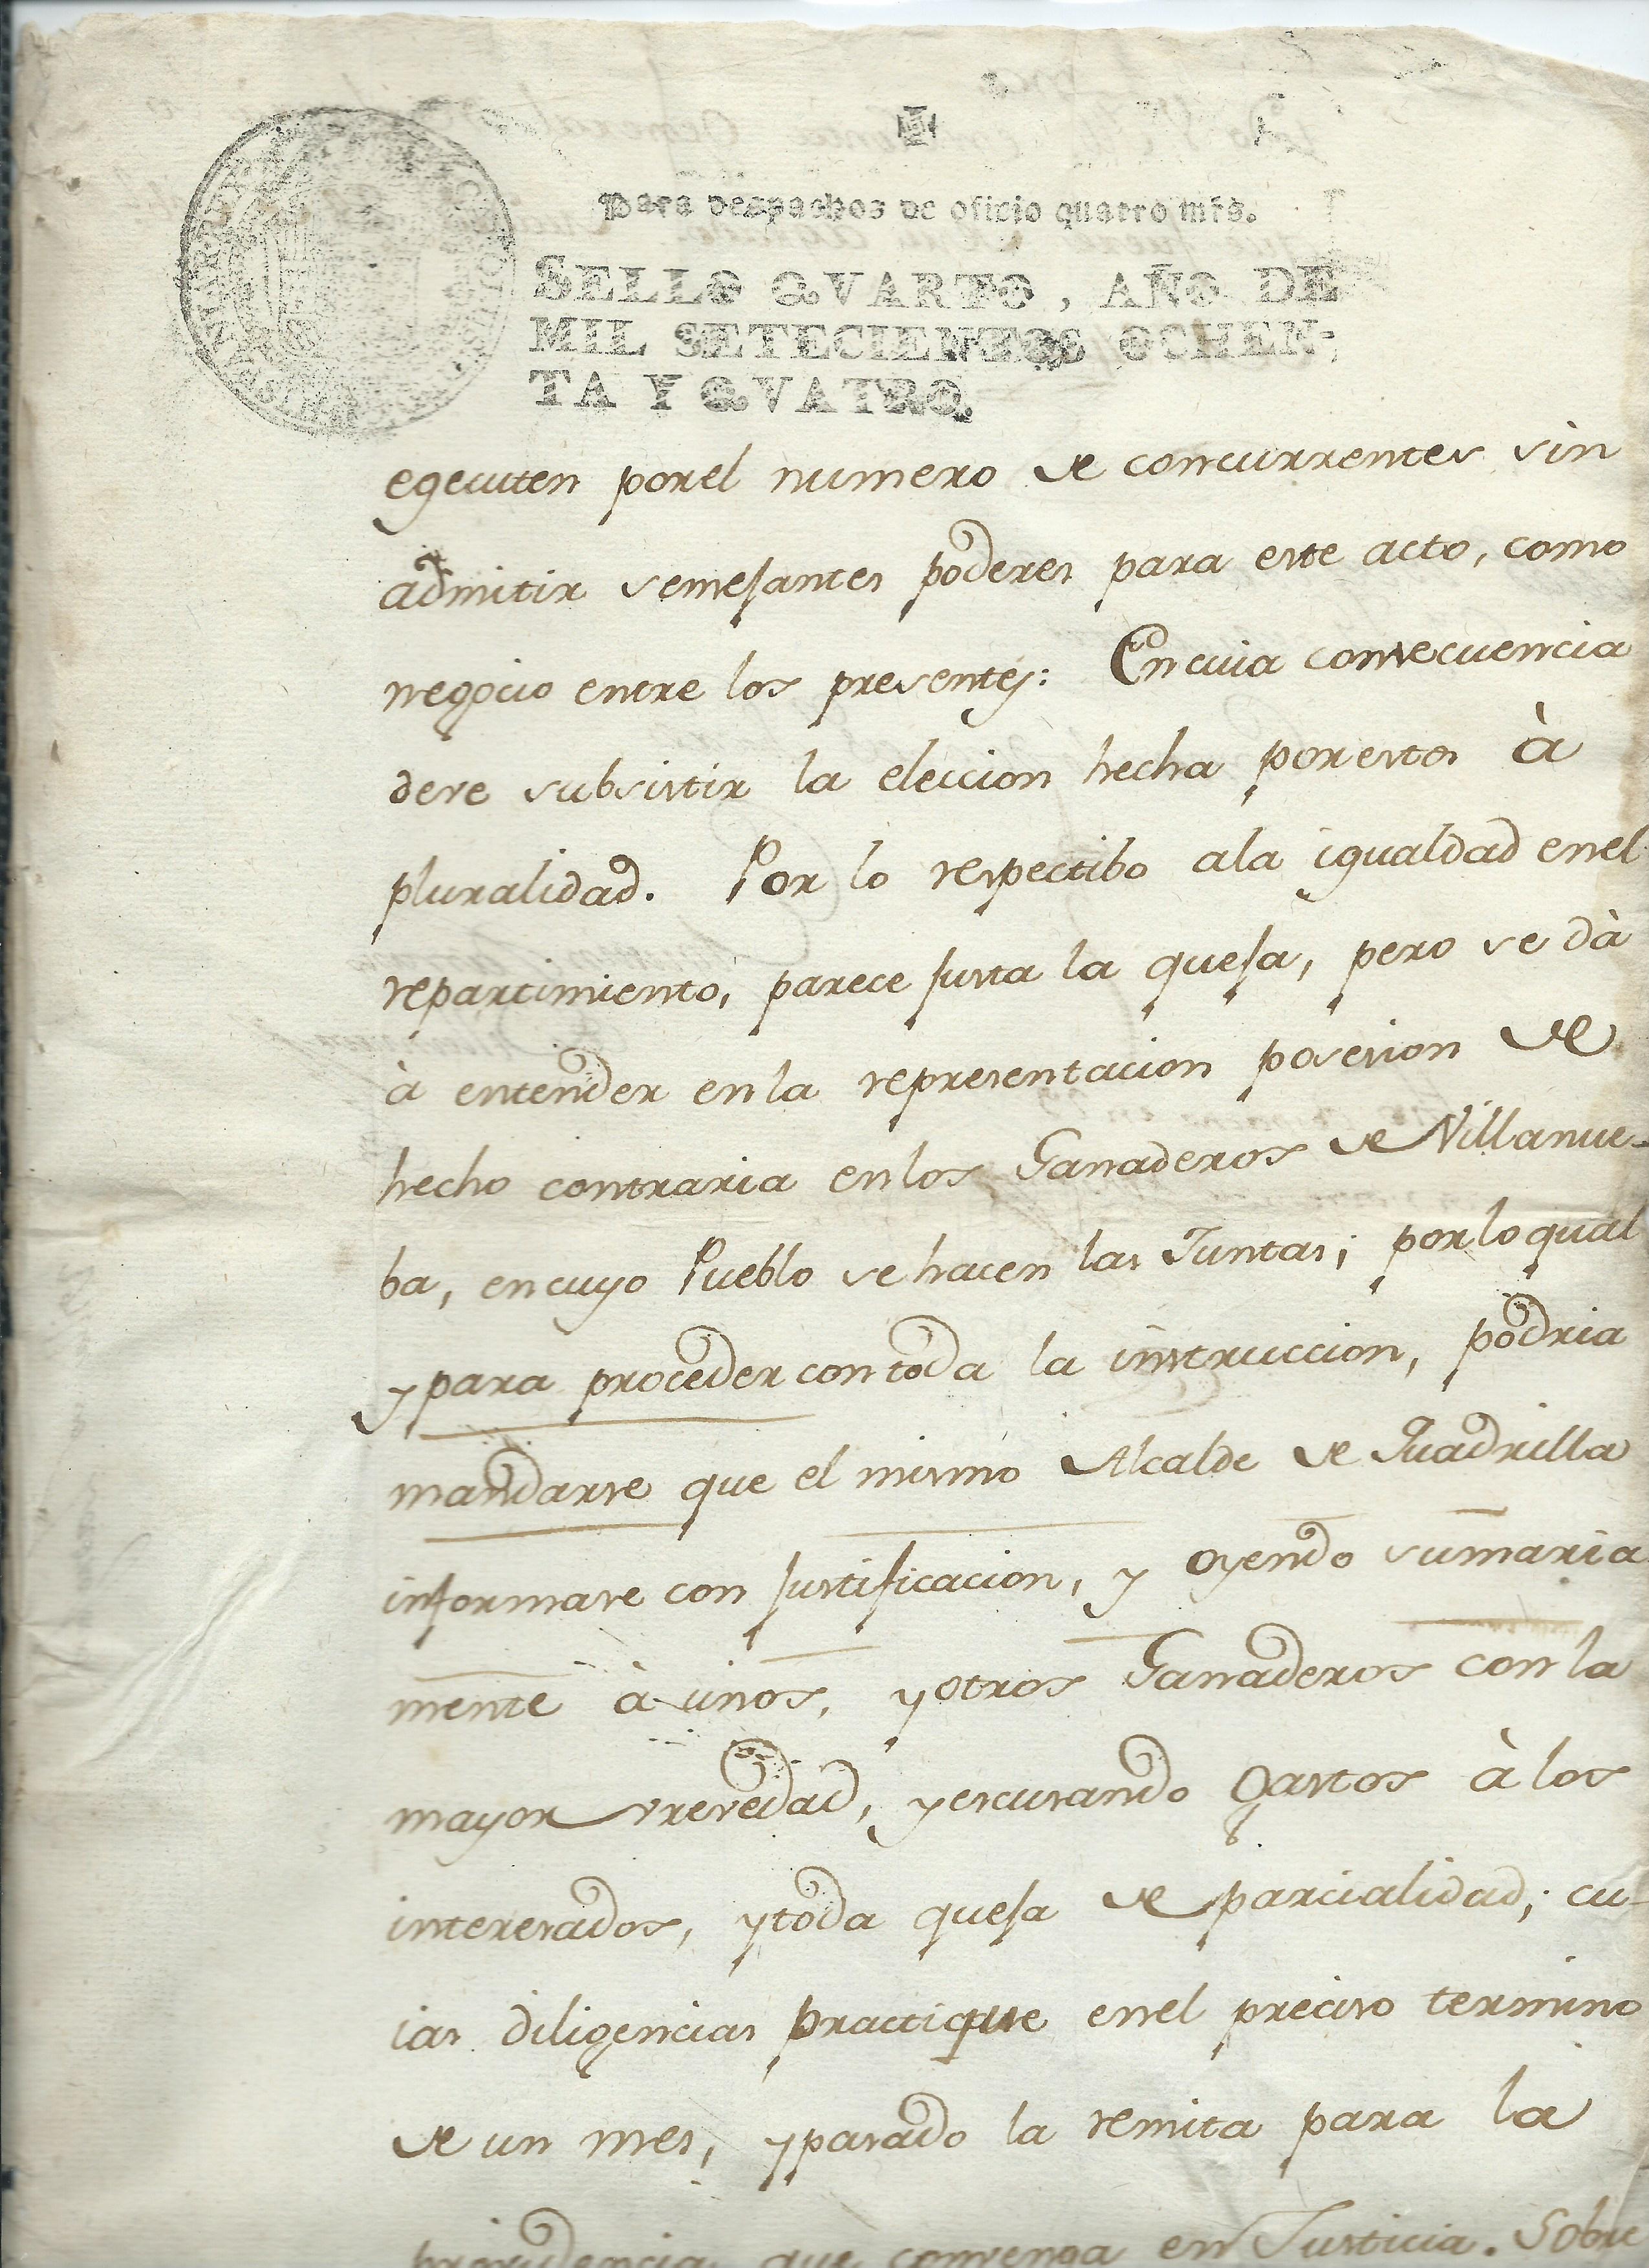 Para despachos de oficio quatro mrs.
SELLO QVARTO, AÑO DE
MIL SETECIENTOS OCHEN-
TA Y QVATRO.
egecuten porel numero de concurrentes sin
admitir semejantes poderes para este acto, como
negocio entre los presentes: En cuia consecuencia
deve subsistir la eleccion hecha por estos à
pluralidad. Por lo respectibo ala igualdad enel
repartimiento, parece justa la queja, pero se dà
à entender enla representacion posesion de
hecho contraria enlos Ganaderos de Villanue-
ba, en cuyo Pueblo se hacen las Juntas; por lo qual
y para proceder con toda la instruccion, podria
mandarse que el mismo Alcalde de Quadrilla
informase con justificacion, y oyendo sumaria
mente à unos, y otros Ganaderos con la
mayor vrevedad, y escusando gastos à los
interesados, y toda queja de parcialidad; cu-
ias diligencias practique enel preciso termino
de un mes, y pasado la remita para la
providencia que convenga en Justicia. Sobre